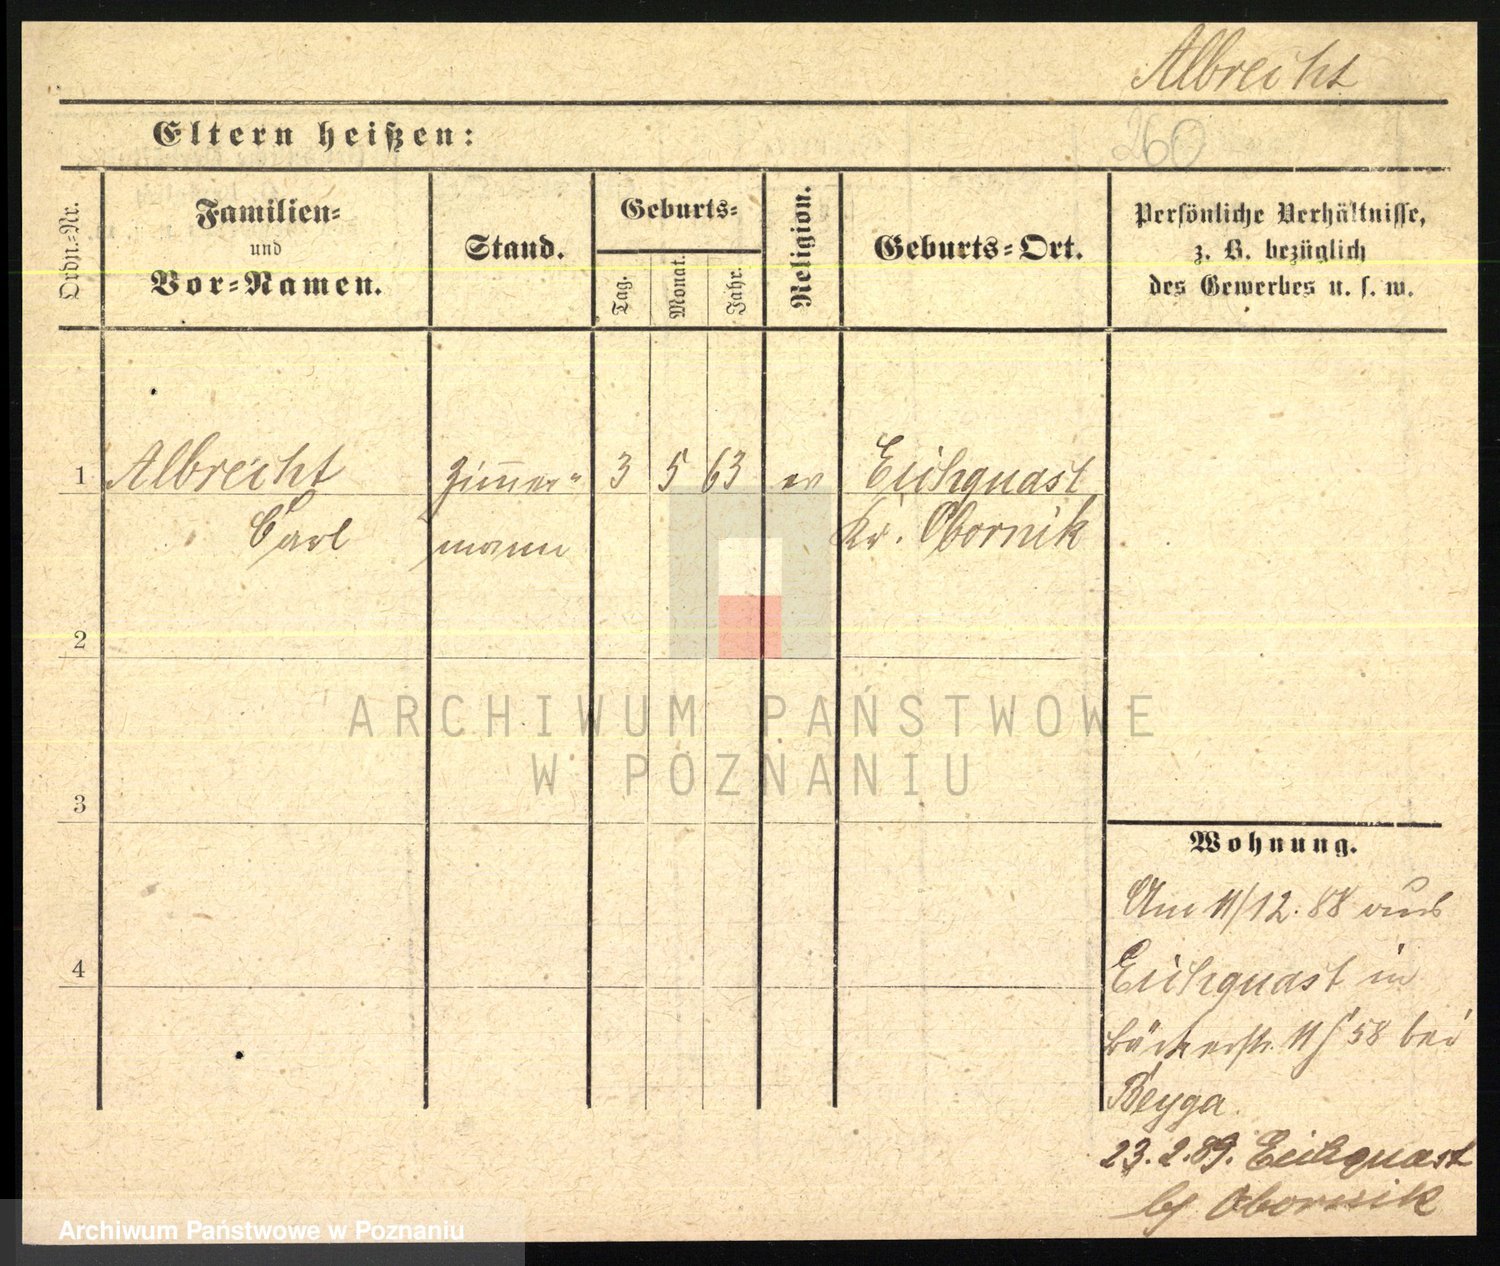 Albrecht
260
Eltern heißen:
Ordn.-Nr.
Familien-
und
Vor-Namen.
Stand.
Geburts-
Tag.
Monat.
Jahr.
Religion.
Geburts-Ort.
Persönliche Verhältnisse,
z. B. bezüglich
des Gewerbes u. s. w.
1 Albrecht Zimmer- 3 5 63 ev Eichquast
Carl mann Kr. Obornik
2
3
4
Wohnung.
Am 11/12. 88 aus
Eichquast in
Bäckerstr. 58 bei
Beyga.
23.2.89. Eichquast
b/ Obornik
ARCHIWUM PAŃSTWOWE
W POZNANIU
Archiwum Państwowe w Poznaniu